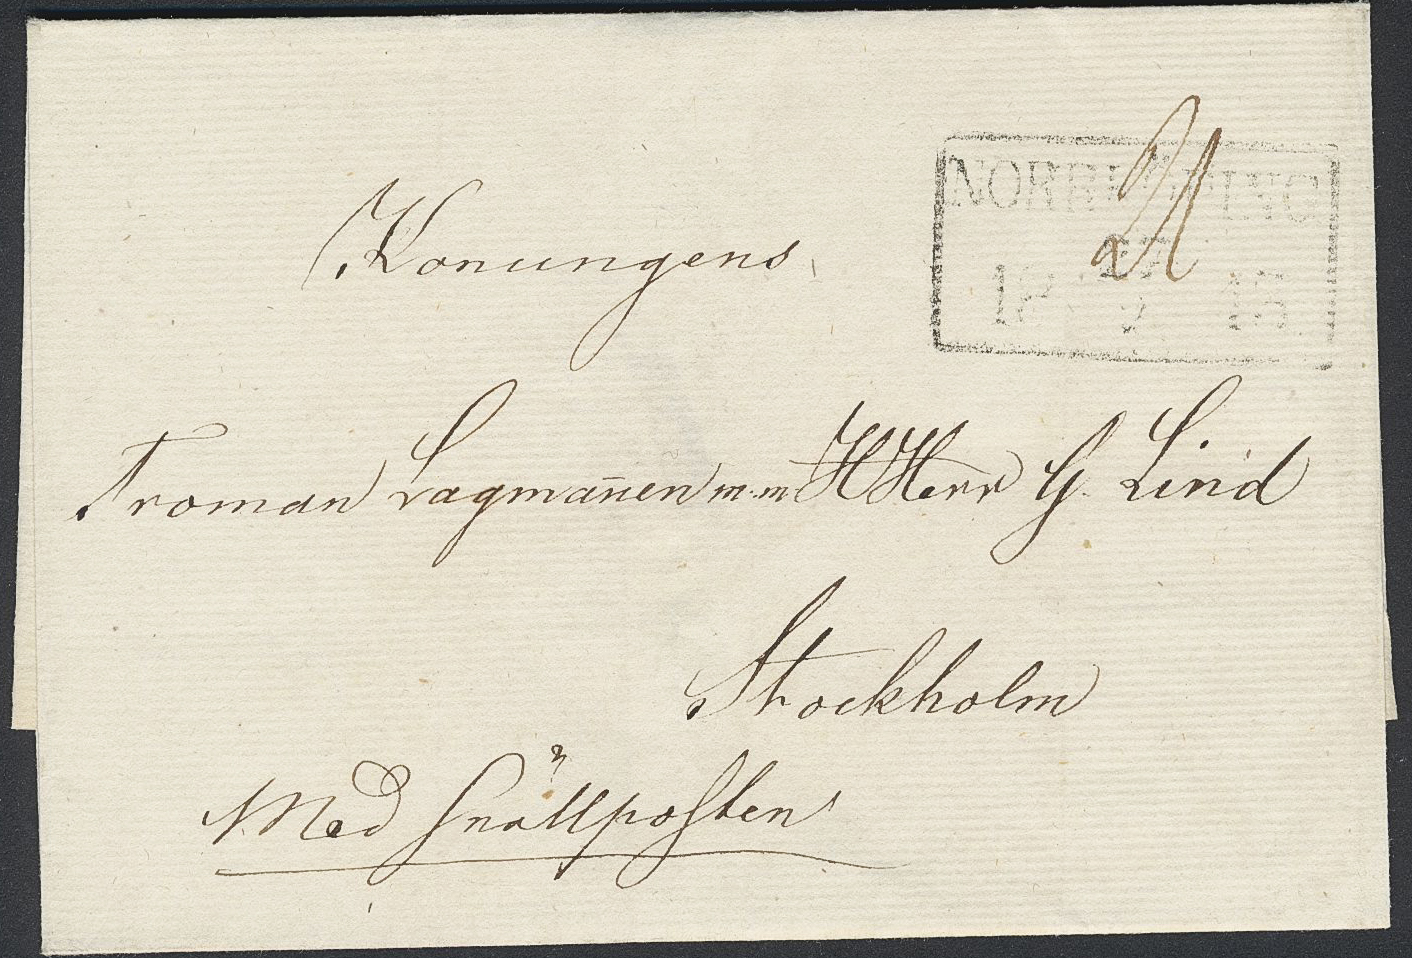 NORRKÖPING
27
Konungens
Troman Lagman̄en m.m H Herr G. Lind
Stockholm
Med Snällposten